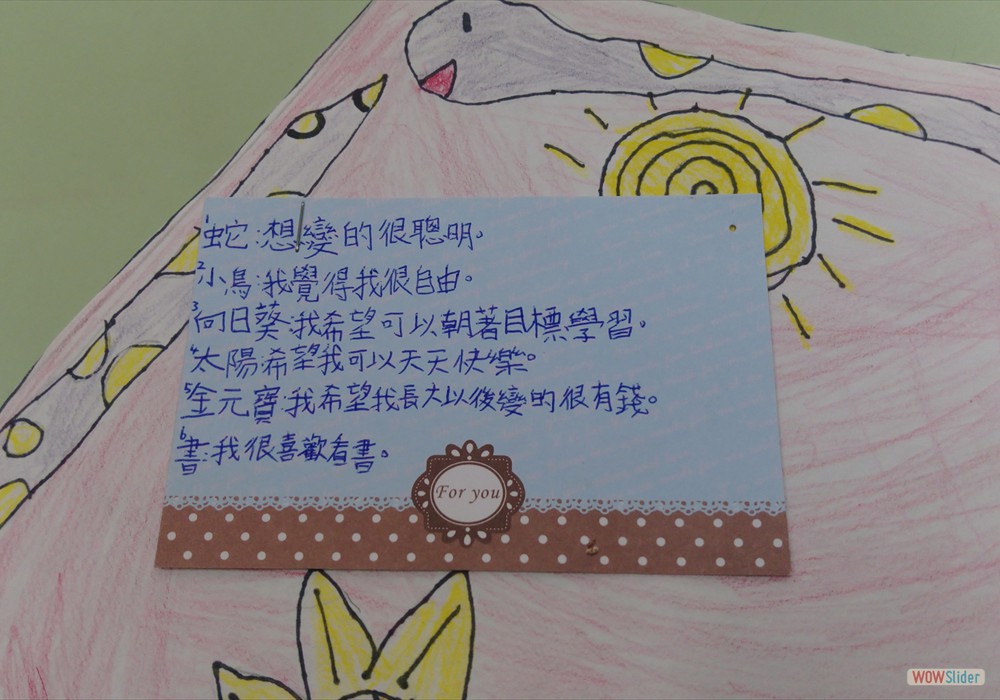 1蛇:想變的很聰明。
2小鳥:我覺得我很自由。
3向日葵:我希望可以朝著目標學習。
4太陽:希望我可以天天快樂。
5金元寶:我希望我長大以後變的很有錢。
6書:我很喜歡看書。
For you
WOWSlider